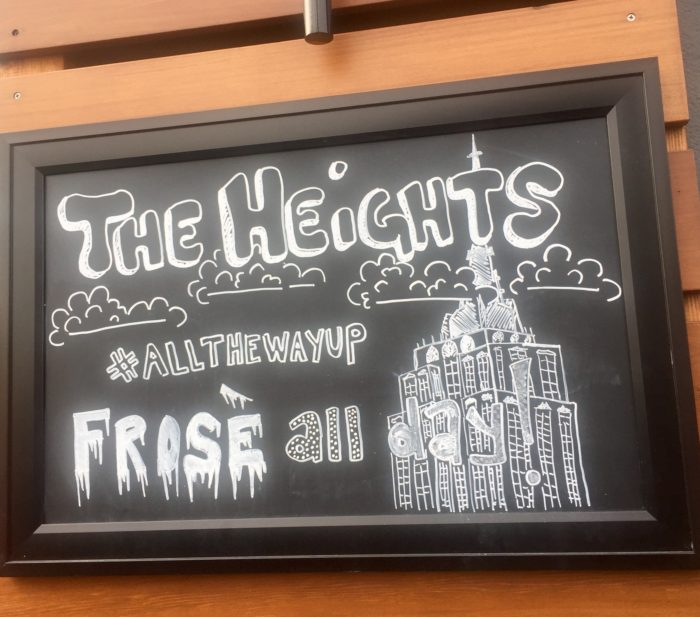 THE HEiGHTS
#ALLTHEWAYUP
FROSÈ all day!